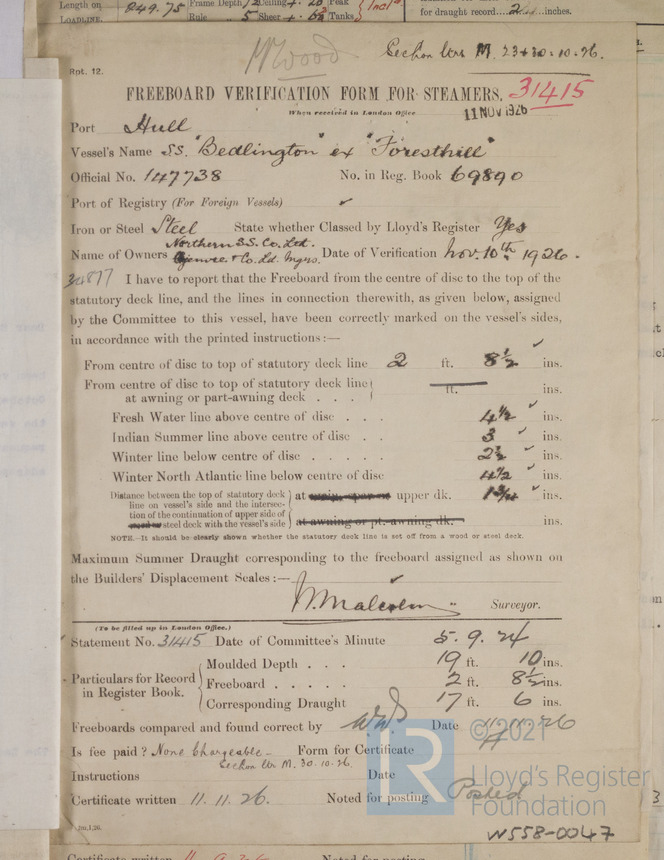 Length on 249.75 Frame Depth Ceiling Peak
LOADLINE. Rule 5 Sheer Tanks
for draught record 2 inches.
Wood
Section Wrs M. 23+30.10.26.
Rpt. 12.
FREEBOARD VERIFICATION FORM FOR STEAMERS. 31415
When received in London Office 11 NOV 1926
Port Hull
Vessel's Name SS. "Bedlington" ex "Foresthill"
Official No. 147738 No. in Reg. Book 69890
Port of Registry (For Foreign Vessels) ✓
Iron or Steel Steel State whether Classed by Lloyd's Register Yes
Northern S.S. Co. Ltd.
Name of Owners & Co. Ld. Mgrs. Date of Verification Nov. 10th 1926.
I have to report that the Freeboard from the centre of disc to the top of the
statutory deck line, and the lines in connection therewith, as given below, assigned
by the Committee to this vessel, have been correctly marked on the vessel's sides,
in accordance with the printed instructions:—
From centre of disc to top of statutory deck line 2 ft. 8½ ins.
From centre of disc to top of statutory deck line
at awning or part-awning deck . . . ft. ins.
Fresh Water line above centre of disc . . . 4½ ins.
Indian Summer line above centre of disc . . 3 ins.
Winter line below centre of disc . . . . . 2½ ins.
Winter North Atlantic line below centre of disc 4½ ins.
Distance between the top of statutory deck
line on vessel's side and the intersec-
tion of the continuation of upper side of
wood or steel deck with the vessel's side
at main, spar or upper dk. 1¾ ins.
at awning or pt. awning dk. ins.
NOTE.—It should be clearly shown whether the statutory deck line is set off from a wood or steel deck.
Maximum Summer Draught corresponding to the freeboard assigned as shown on
the Builders' Displacement Scales:— ✓
W. Malcolm Surveyor.
(To be filled up in London Office.)
Statement No. 31415 Date of Committee's Minute 5.9.24
Particulars for Record
in Register Book.
Moulded Depth . . . 19 ft. 10 ins.
Freeboard . . . . . 2 ft. 8½ ins.
Corresponding Draught 17 ft. 6 ins.
Freeboards compared and found correct by Date
Is fee paid? None Chargeable Form for Certificate
Section Wr M. 30.10.26.
Instructions Date
Certificate written 11.11.26. Noted for posting Posted
2m,1,26.
© 2021
LR
Lloyd's Register
Foundation
W558-0047
Certificate written Noted for posting